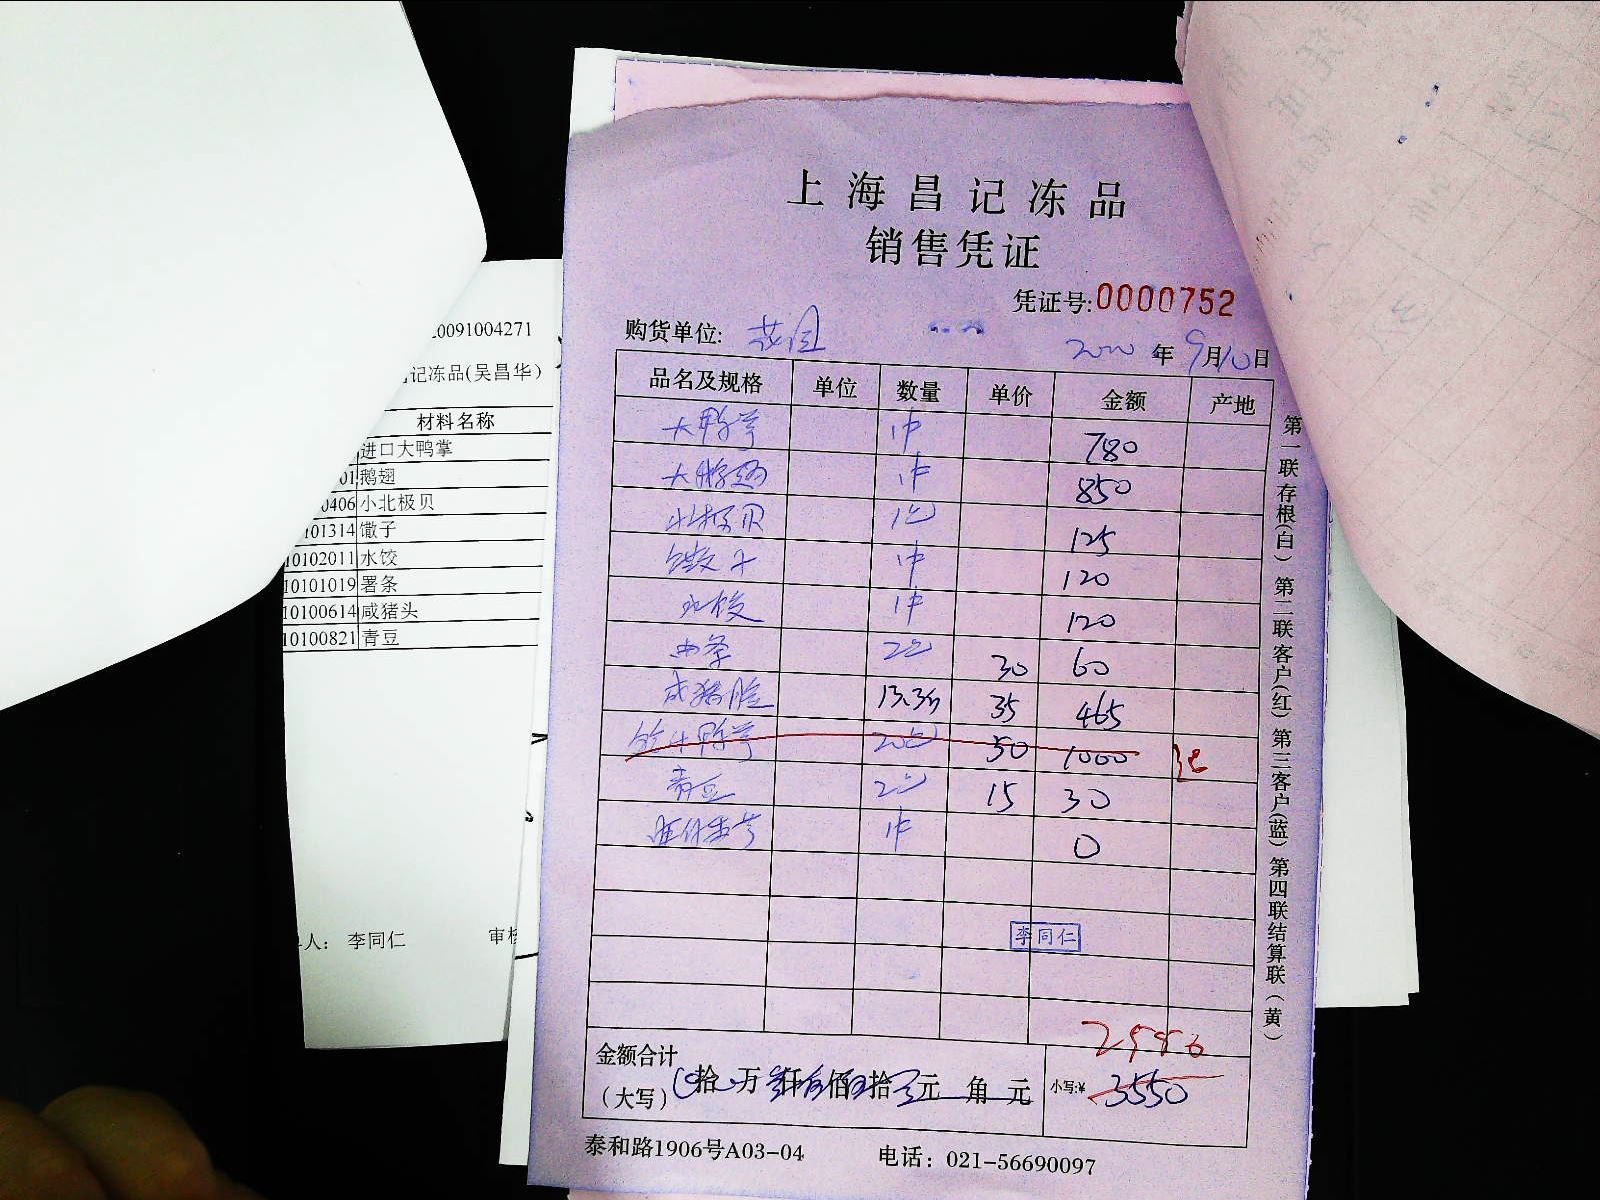 上海昌记冻品
销售凭证
凭证号:0000752
购货单位:
年 9月10日
品名及规格 单位 数量 单价 金额 产地
大鸭掌 1件 780
大鹅翅 1件 850
北极贝 1包 125
馓子 1件 120
水饺 1件 120
2包 30 60
咸猪脸 13.3斤 35 465
鸭掌 20包 50 1000
青豆 2包 15 30
1件 0
李同仁
金额合计
(大写) 拾 万 仟 佰 拾 元 角 元
小写:¥ 3550
泰和路1906号A03-04 电话：021-56690097
第一联存根(白) 第二联客户(红) 第三客户(蓝) 第四联结算联(黄)
20091004271
记冻品(吴昌华)
材料名称
进口大鸭掌
01 鹅翅
0406 小北极贝
101314 馓子
10102011 水饺
10101019 署条
10100614 咸猪头
10100821 青豆
人： 李同仁 审核